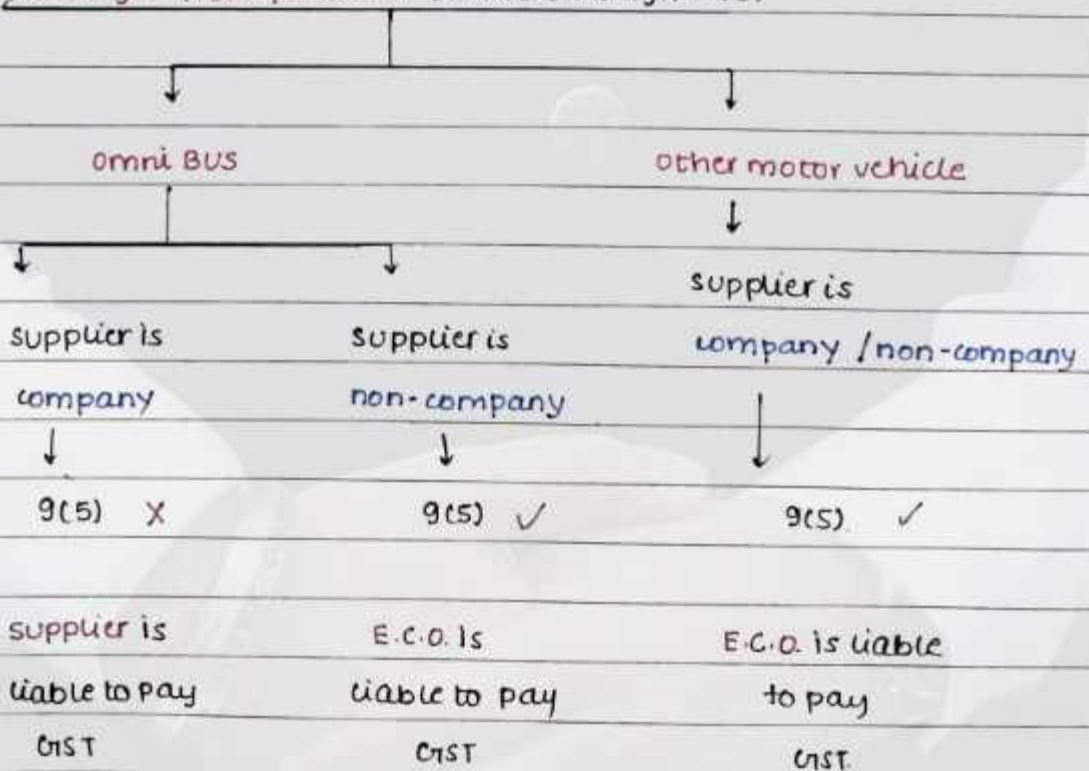 omni BUS
other motor vehicle
supplier is
company / non-company
supplier is
company
supplier is
non-company
9(5) X
9(5) ✓
9(5) ✓
supplier is
liable to pay
GST
E.C.O. is
liable to pay
GST
E.C.O. is liable
to pay
GST